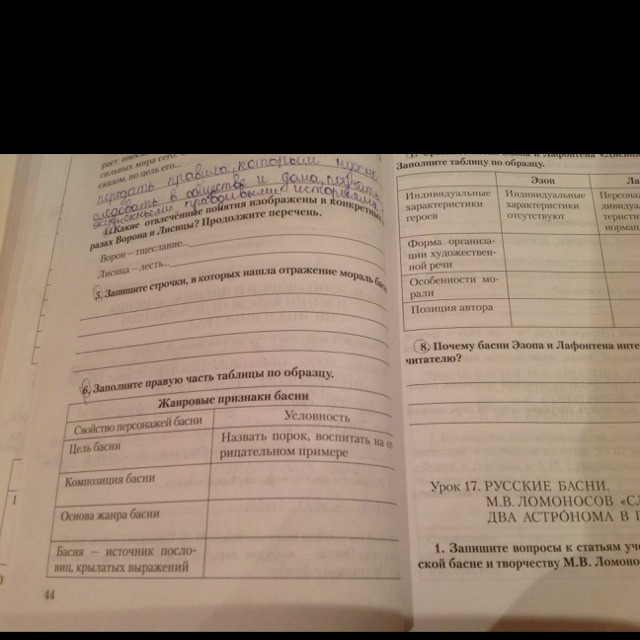 рает
сильных мира сего.
сказом, но цель его...
передать правила, которым нужно
следовать в обществе и дома,
правдивыми историями.
4. Какие отвлечённые понятия изображены в конкретных
разах Ворона и Лисицы? Продолжите перечень.
Ворон – тщеславие...
Лисица – лесть...
5. Запишите строчки, в которых нашла отражение мораль бас
6. Заполните правую часть таблицы по образцу.
Жанровые признаки басни
Свойство персонажей басни Условность
Цель басни Назвать порок, воспитать на от
рицательном примере
Композиция басни
Основа жанра басни
Басня — источник посло-
виц, крылатых выражений
44
Заполните таблицу по образцу.
Эзоп Ла
Индивидуальные Индивидуальные Персона
характеристики характеристики дивидуал
героев отсутствуют теристи
норман
Форма организа-
ции художествен-
ной речи
Особенности мо-
рали
Позиция автора
8. Почему басни Эзопа и Лафонтена инте
читателю?
Урок 17. РУССКИЕ БАСНИ.
М.В. ЛОМОНОСОВ «СЛ
ДВА АСТРО́НОМА В П
1. Запишите вопросы к статьям уче
ской басне и творчеству М.В. Ломоно